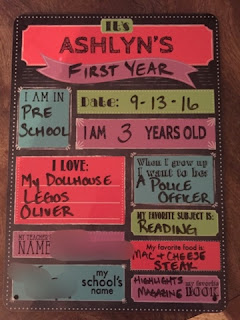 It's
ASHLYN'S
FIRST YEAR
I AM IN
PRE
SCHOOL
Date: 9-13-16
I AM 3 YEARS OLD
I LOVE:
My DOLLHOUSE
LEGOS
OLIVER
When I grow up
I want to be:
A POLICE
OFFICER
MY FAVORITE SUBJECT IS:
READING
MY TEACHER'S
NAME
My favorite food is:
MAC + CHEESE
STEAK
my
school's
name
HIGHLIGHTS
MAGAZINE
my favorite
BOOK